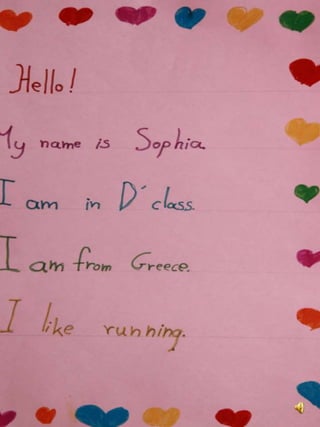 Hello!
My name is Sophia.
I am in D' class.
I am from Greece.
I like running.